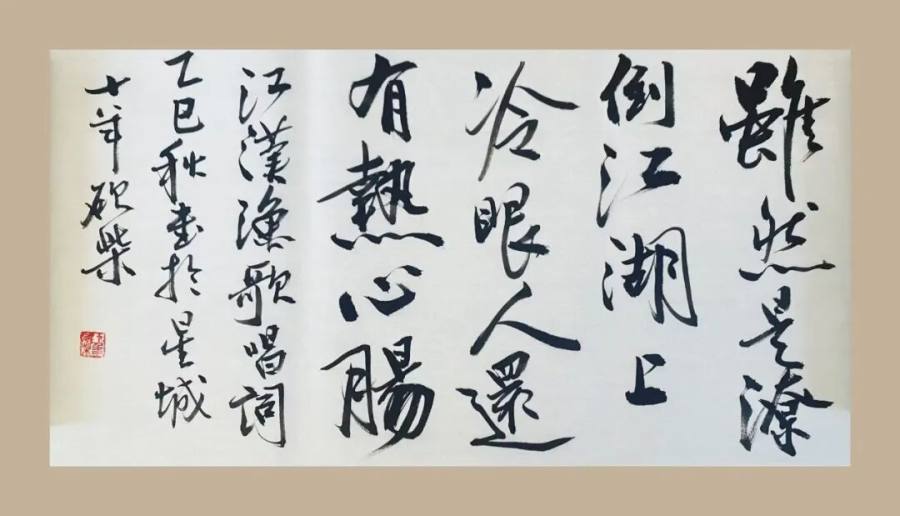 雖然是潦
倒江湖上
冷眼人還
有熱心腸
江漢漁歌唱詞
乙巳秋書於星城
十年砍柴